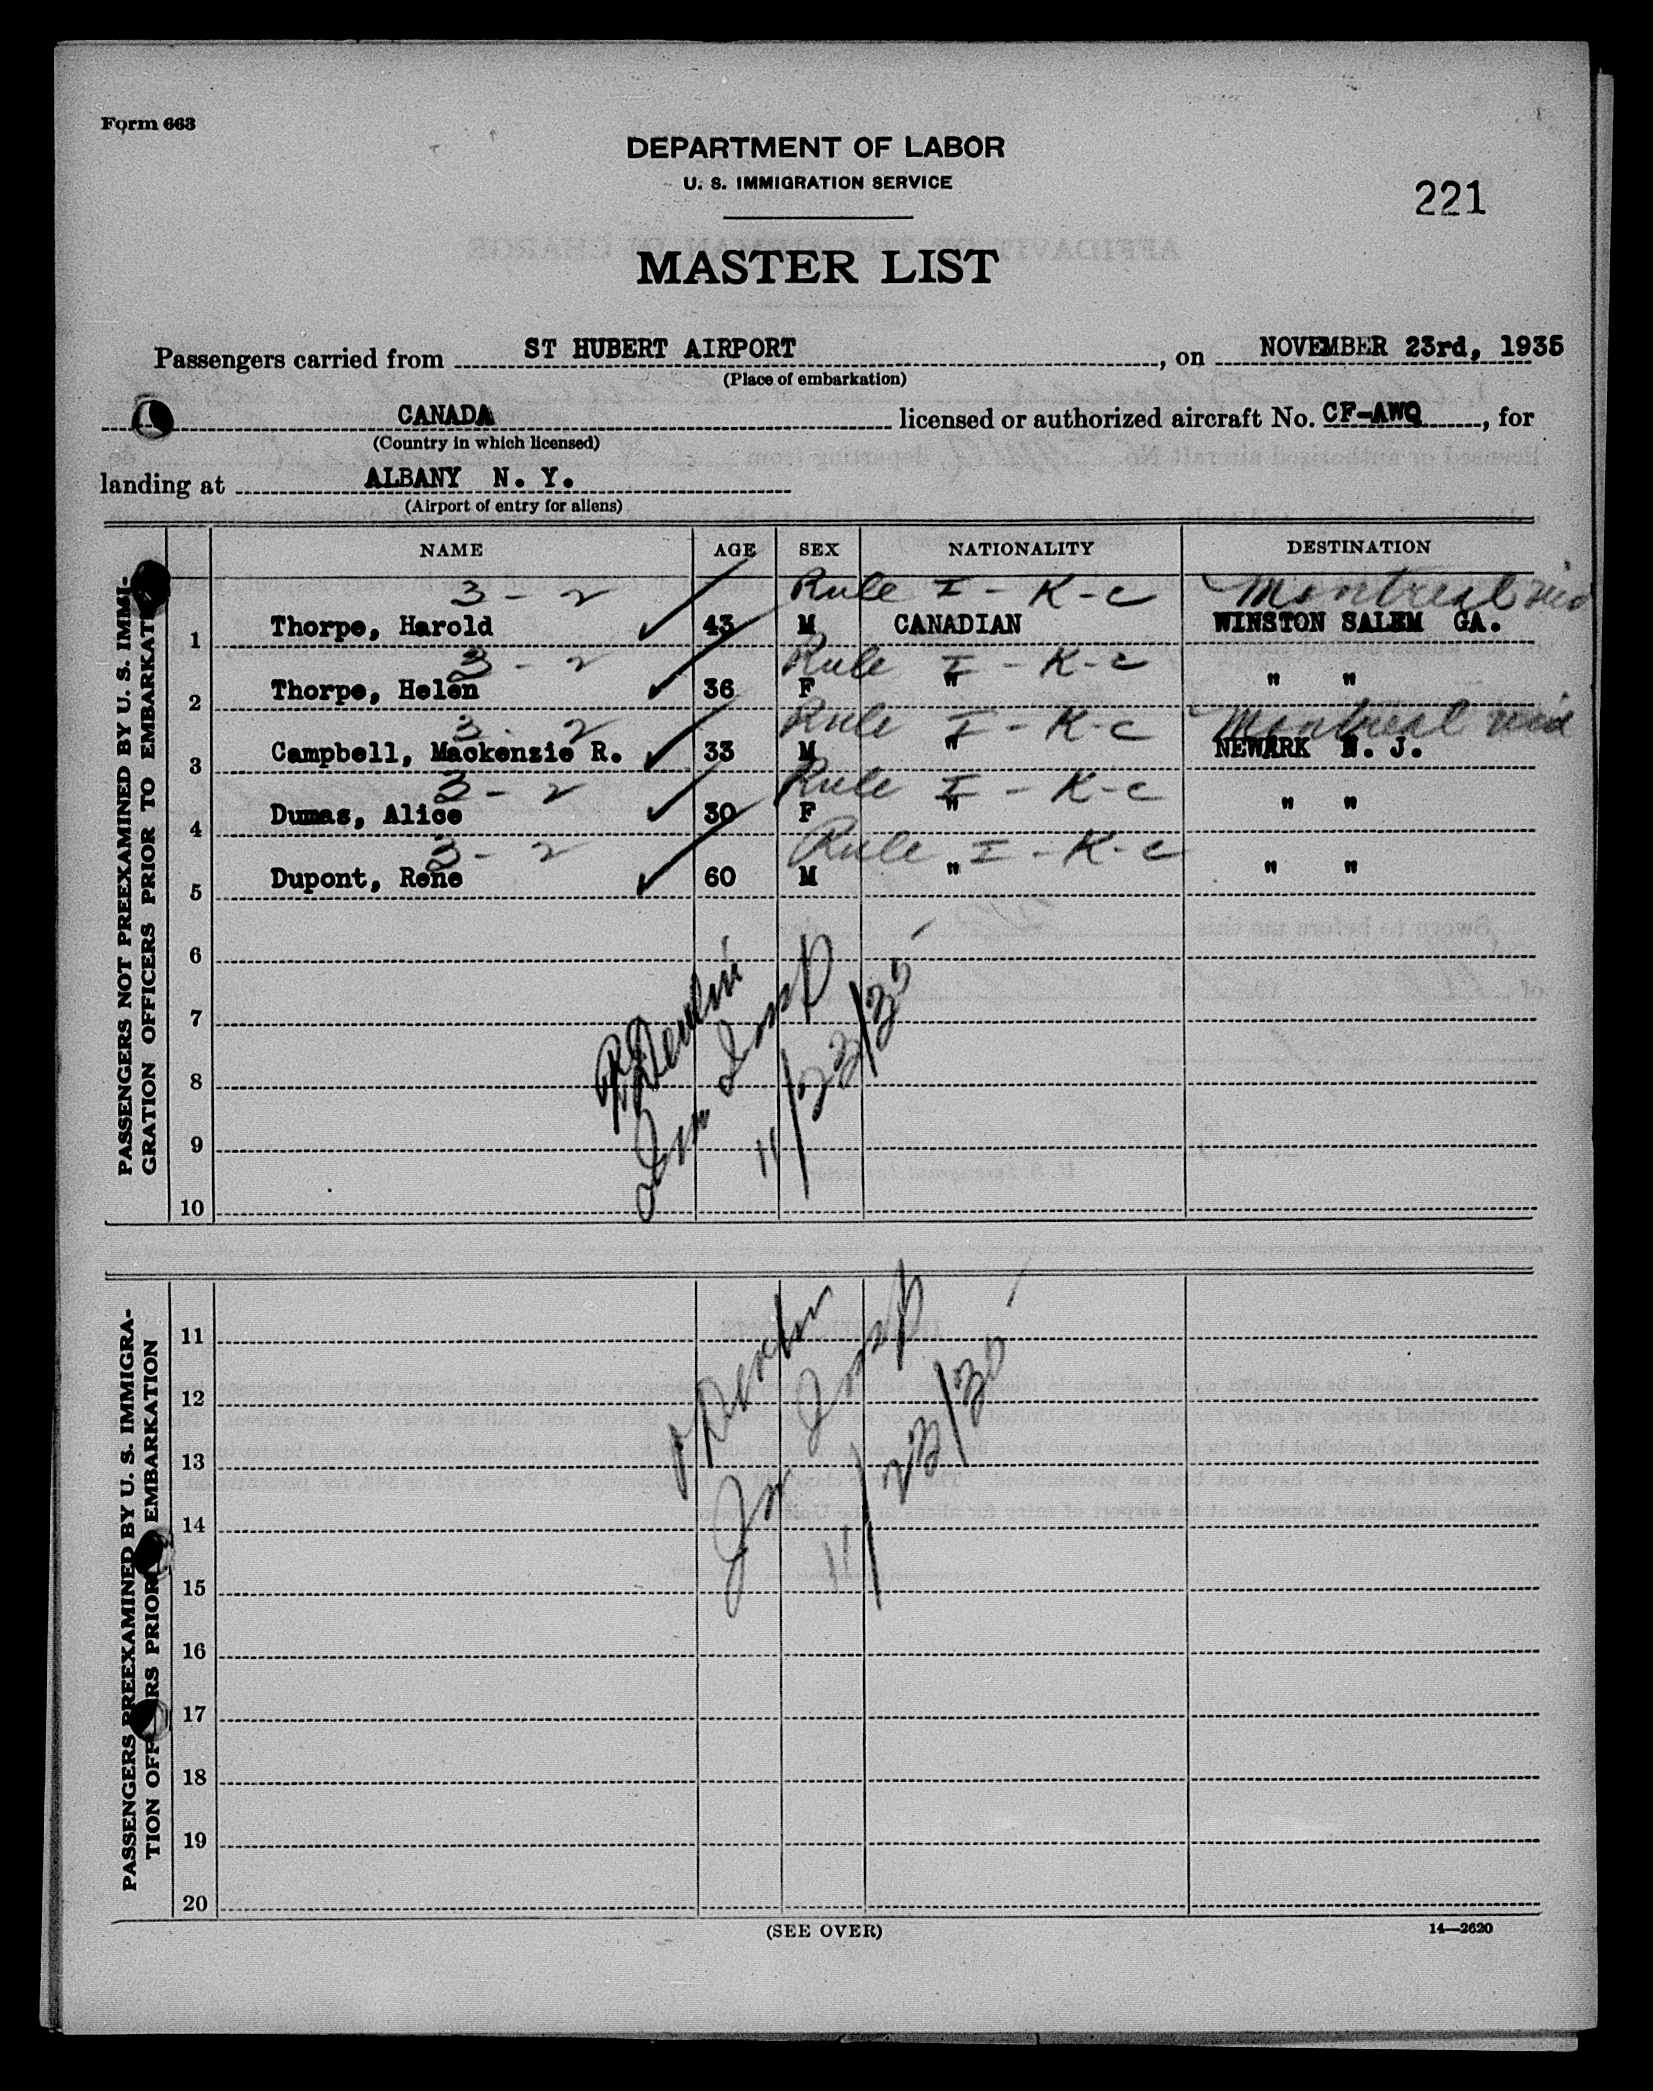 Form 663
DEPARTMENT OF LABOR
U. S. IMMIGRATION SERVICE
221
MASTER LIST
Passengers carried from ST HUBERT AIRPORT, on NOVEMBER 23rd, 1935
(Place of embarkation)
CANADA licensed or authorized aircraft No. CF-AWQ, for
(Country in which licensed)
landing at ALBANY N. Y.
(Airport of entry for aliens)
NAME AGE SEX NATIONALITY DESTINATION
PASSENGERS NOT PREEXAMINED BY U. S. IMMI-
GRATION OFFICERS PRIOR TO EMBARKAT
3 - 2 Rule I - K-c Montreal
1 Thorpe, Harold 43 M CANADIAN WINSTON SALEM GA.
3 - 2 Rule I - K-c
2 Thorpe, Helen 36 F " " "
3 - 2 Rule I - K-c Montreal
3 Campbell, Mackenzie R. 33 M " NEWARK N. J.
3 - 2 Rule I - K-c
4 Dumas, Alice 30 F " " "
3 - 2 Rule I - K-c
5 Dupont, Rene 60 M " " "
6
7
8
9
10
Imm Insp
11/23/35
PASSENGERS PREEXAMINED BY U. S. IMMIGRA-
TION OFF RS PRIOR EMBARKATION
11
12
13
14
15
16
17
18
19
20
Insp
11/23/35
(SEE OVER)
14—2620